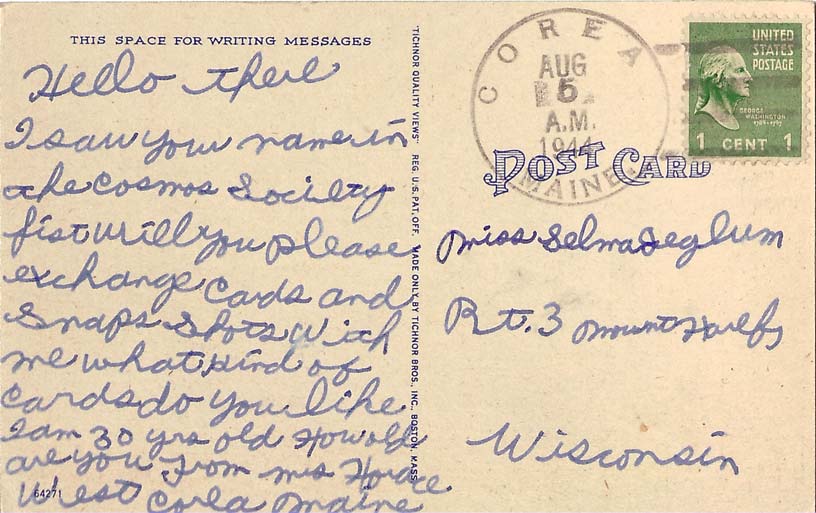 THIS SPACE FOR WRITING MESSAGES
Hello there
I saw your name in
the Cosmos Society
fist will you please
exchange cards and
Snaps Shots With
me what kind of
cards do you like
I am 30 yrs old How old
are you From mis Horace
West Corea Maine
64271
"TICHNOR QUALITY VIEWS" REG. U.S. PAT. OFF. MADE ONLY BY TICHNOR BROS., INC., BOSTON, MASS.
COREA
AUG
5
A.M.
1944
MAINE.
UNITED
STATES
POSTAGE
GEORGE
WASHINGTON
1789-1797
1 CENT 1
POST CARD
Miss Selma Seglum
Rt. 3 Mount Horeb
Wisconsin